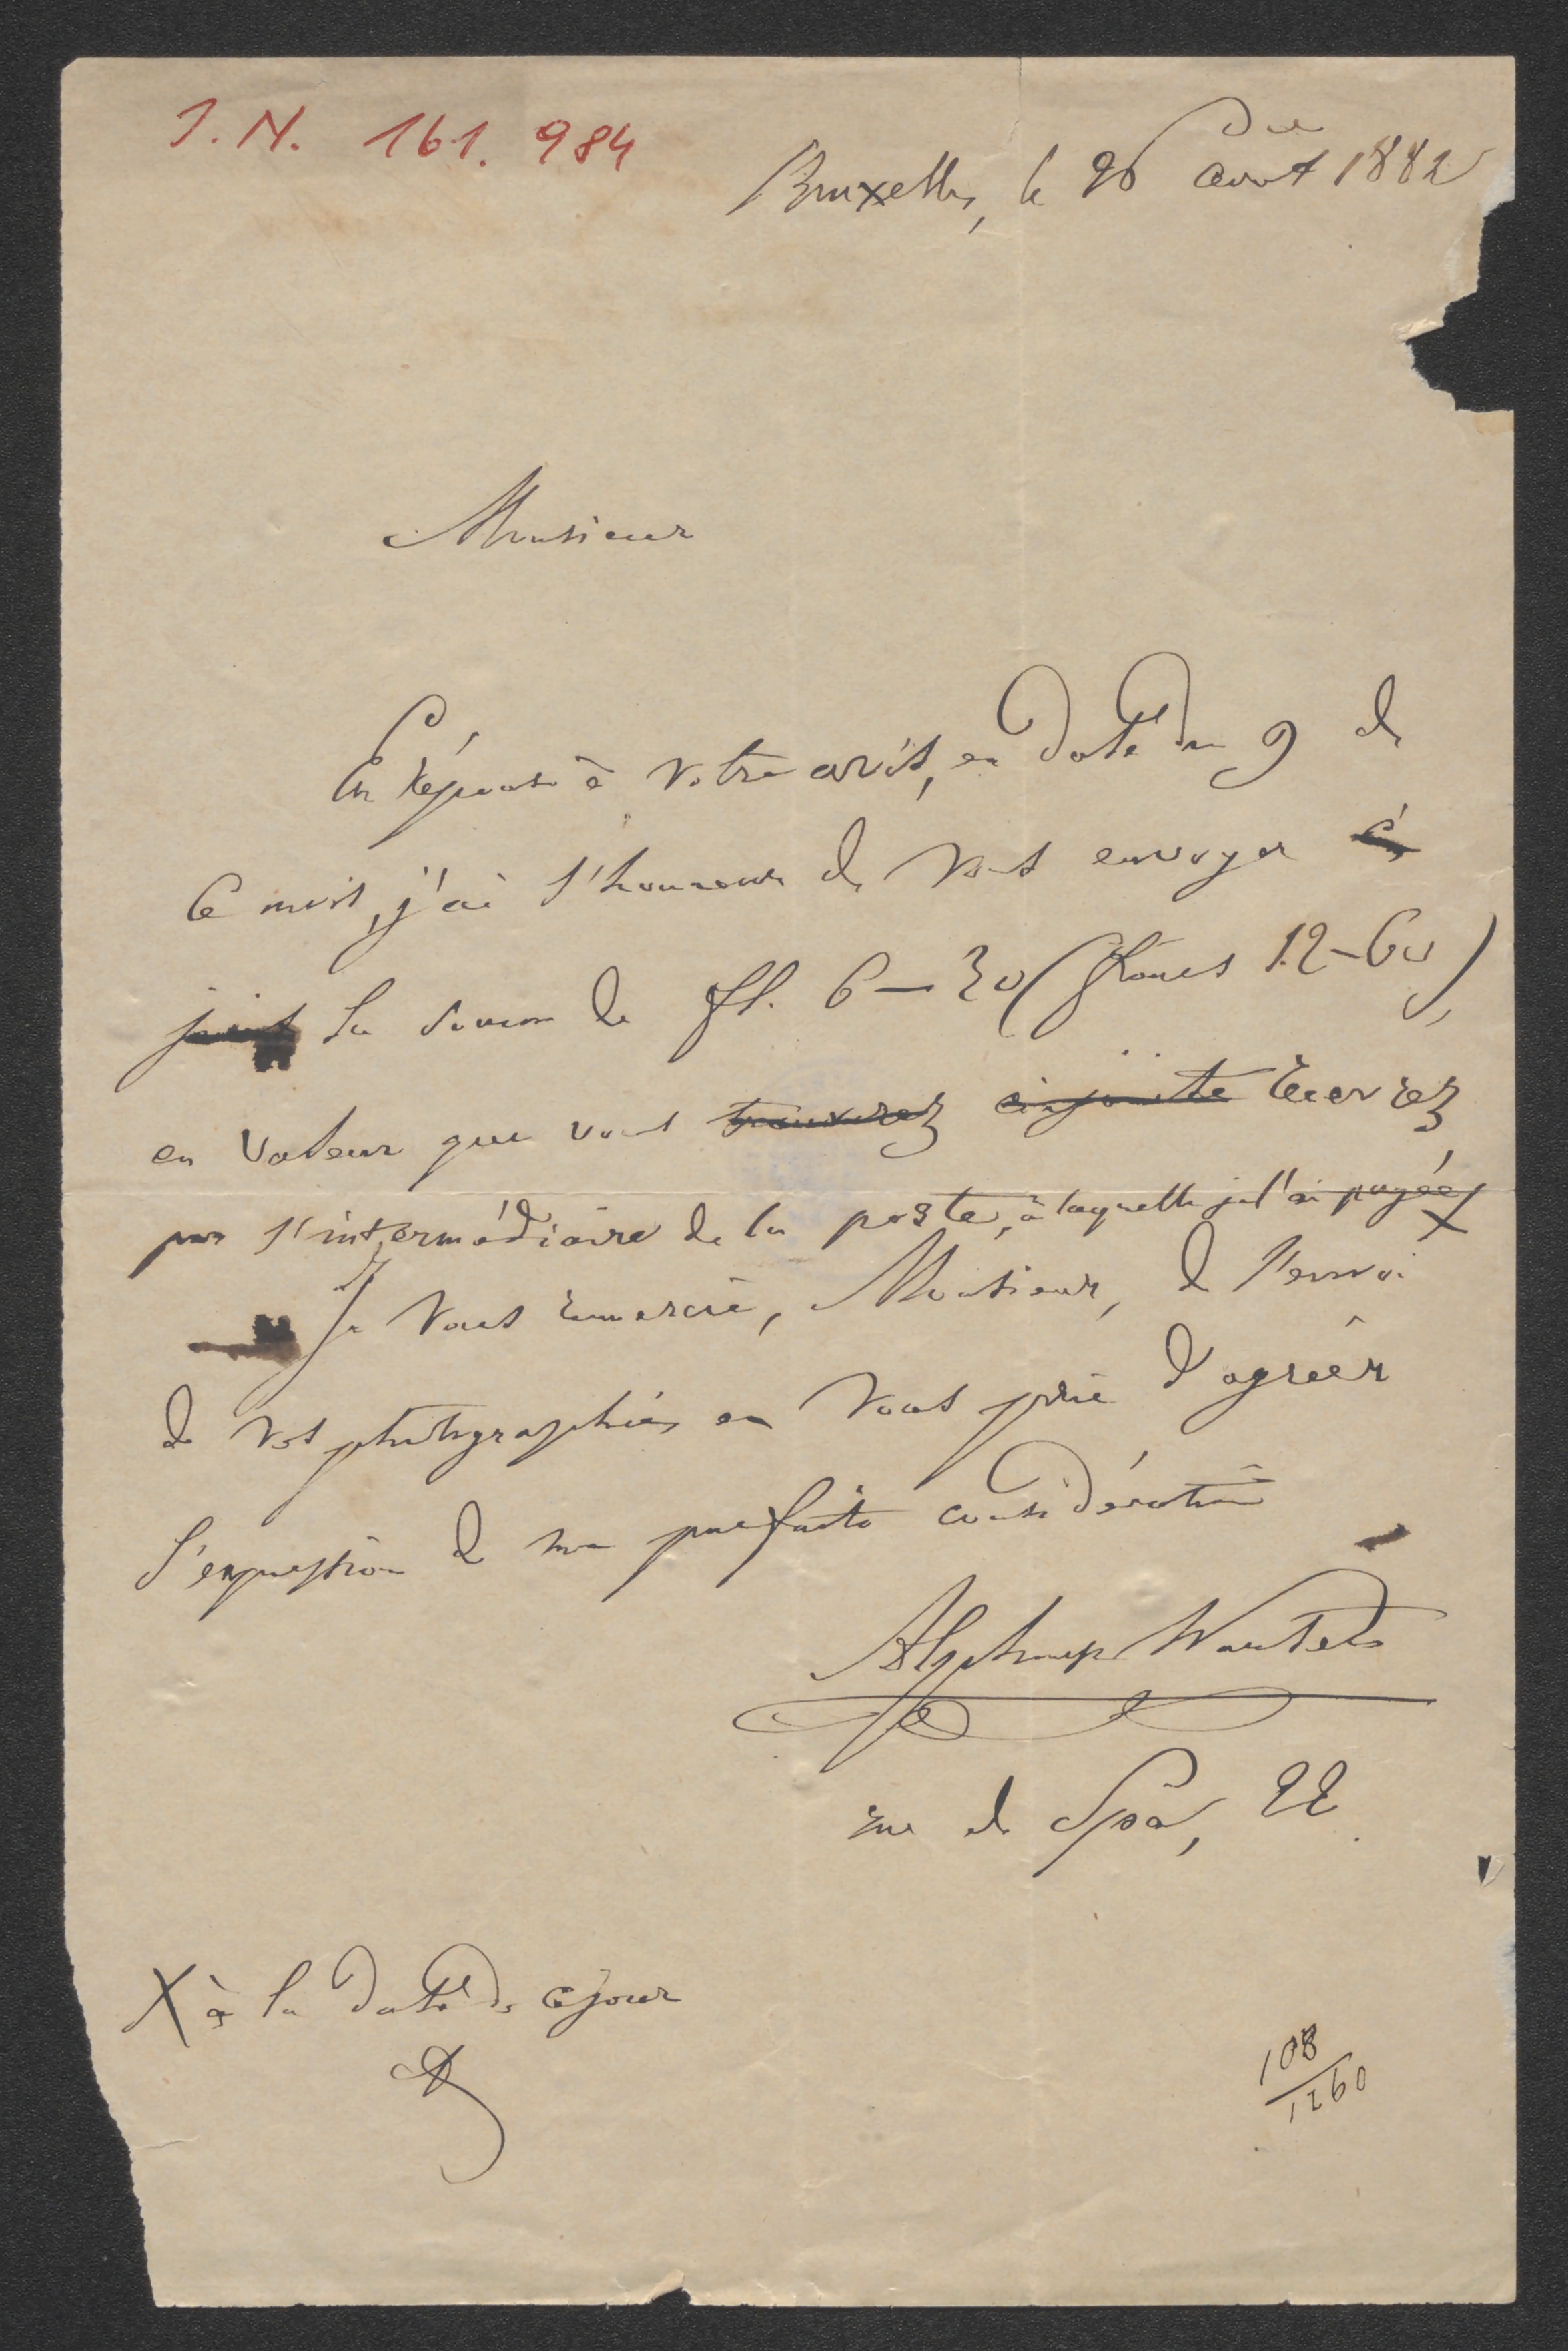 I.N. 161.984
Bruxelles, le 26 août 1882
Monsieur
En réponse à votre avis, en date du 9 de
ce mois, j'ai l'honneur de vous envoyer ci
joint la somme de fl. 6-30 (francs 12-60),
en valeur que vous trouverez ci-jointe recevrez
par l'intermédiaire de la poste, à laquelle je l'ai payée X
Je vous remercie, Monsieur, de l'envoi
de vos photographies en vous prie d'agréer
l'expression de ma parfaite considération
Alphonse Wauters
rue de Spa, 22
X à la date de ce jour
108
1260